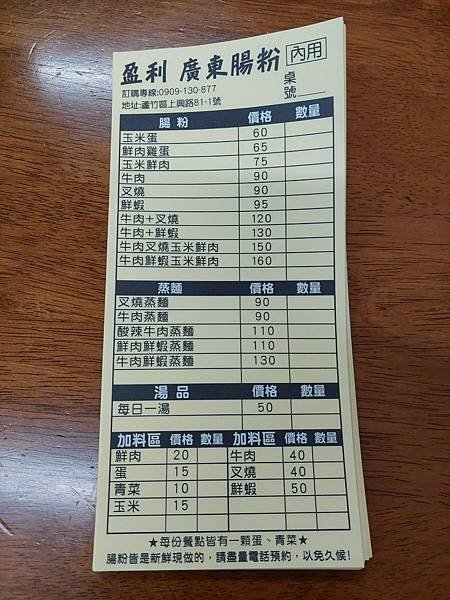 盈利 廣東腸粉 內用
訂購專線:0909-130-877 桌號
地址:蘆竹區上興路81-1號
腸粉 價格 數量
玉米蛋 60
鮮肉雞蛋 65
玉米鮮肉 75
牛肉 90
叉燒 90
鮮蝦 95
牛肉+叉燒 120
牛肉+鮮蝦 130
牛肉叉燒玉米鮮肉 150
牛肉鮮蝦玉米鮮肉 160
蒸麵 價格 數量
叉燒蒸麵 90
牛肉蒸麵 90
酸辣牛肉蒸麵 110
鮮肉鮮蝦蒸麵 110
牛肉鮮蝦蒸麵 130
湯品 價格 數量
每日一湯 50
加料區 價格 數量 加料區 價格 數量
鮮肉 20 牛肉 40
蛋 15 叉燒 40
青菜 10 鮮蝦 50
玉米 15
★每份餐點皆有一顆蛋、青菜★
腸粉皆是新鮮現做的，請盡量電話預約，以免久候!